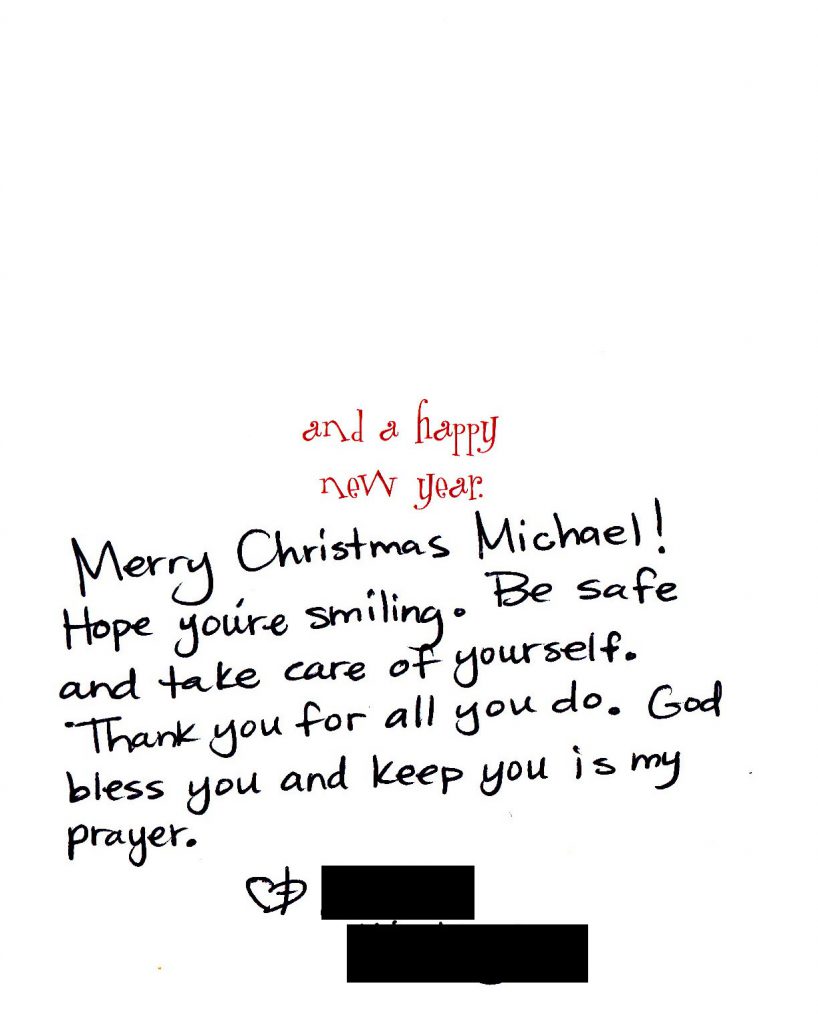 and a happy
new year.
Merry Christmas Michael!
Hope you're smiling. Be safe
and take care of yourself.
Thank you for all you do. God
bless you and keep you is my
prayer.